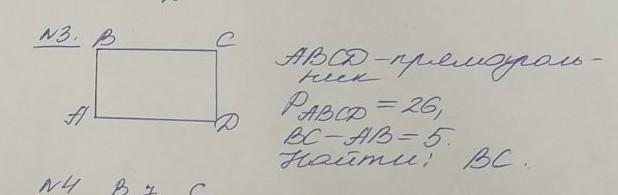 №3.
B C
A D
ABCD - прямоуголь-
ник
P ABCD = 26,
BC - AB = 5.
Найти: BC.
№4 B C